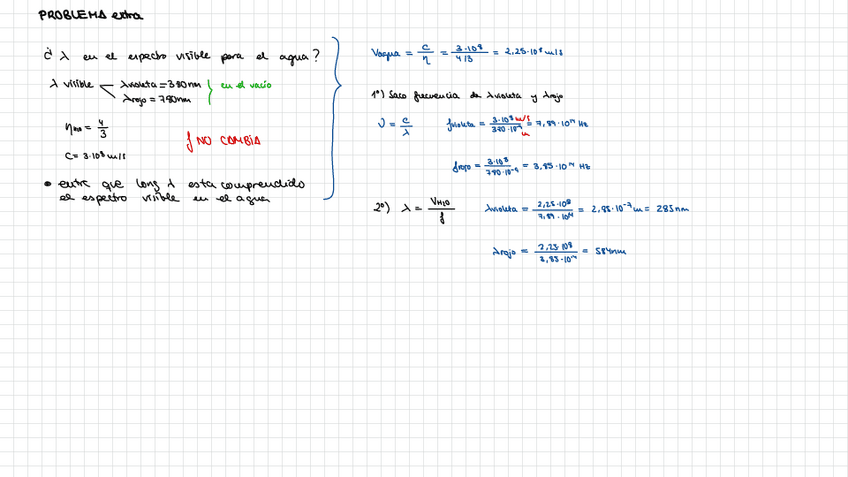 PROBLEMA extra
¿ λ en el espectro visible para el agua?
λ visible λvioleta = 380nm
λrojo = 780nm
en el vacío
η = 4/3
f NO CAMBIA
C = 3·10⁸ m/s
• entre que long λ esta comprendido
el espectro visible en el agua
Vagua = c/η = 3·10⁸ / 4/3 = 2,25·10⁸ m/s
1º) Saco frecuencia de λvioleta y λrojo
ν = c/λ fvioleta = 3·10⁸ m/s / 380·10⁻⁹ m = 7,89·10¹⁴ Hz
frojo = 3·10⁸ / 780·10⁻⁹ = 3,85·10¹⁴ Hz
2º) λ = VH2O / f λvioleta = 2,25·10⁸ / 7,89·10¹⁴ = 2,85·10⁻⁷ m = 285nm
λrojo = 2,25·10⁸ / 3,85·10¹⁴ = 584nm